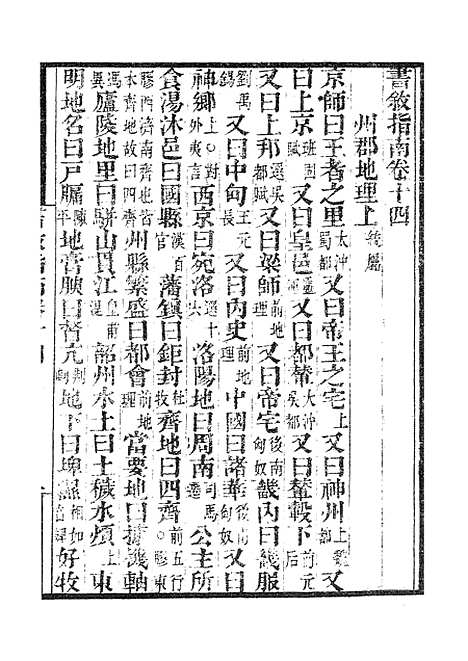 書敘指南卷十四
州郡地理上
京師曰王者之里太沖蜀都又曰帝王之宅上又曰神州上又
曰上京班固賦又曰皇邑又曰都輦太沖吳都又曰輦轂下前元后
又曰上邦都賦又曰梁師前地理又曰帝宅後南匈奴畿內曰畿服
劉禹錫又曰中甸王元長又曰內史前地理中國曰諸華後匈奴又曰
神鄉上對外夷言西京曰宛洛選十洛陽地曰周南司馬遷公主所
食湯沐邑曰國縣漢百官藩鎮曰鉅封杜牧齊地曰四齊前五行膠東
膠西濟南齊也皆本齊地故曰四齊州縣繁盛曰都會前地理當要地曰據機軸
馮異廬陵地里曰駢山貫江皇甫湜韶州水土曰土穢水煩上東
明地名曰戶牖陳平地膏腴曰膏尢荆州地下曰埤濕相如好牧